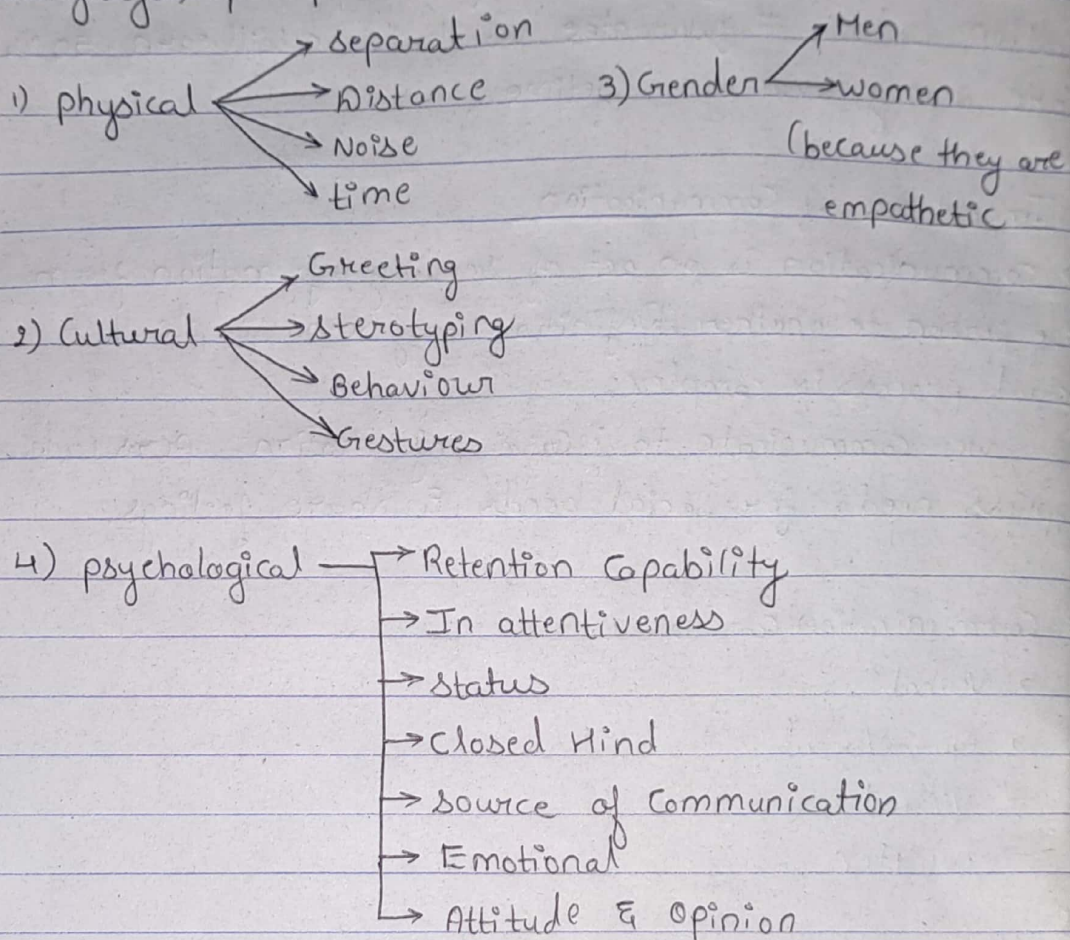 1) physical
separation
Distance
Noise
time
3) Gender
Men
women
(because they are
empathetic
2) Cultural
Greeting
sterotyping
Behaviour
Gestures
4) psychological
Retention Capability
In attentiveness
status
Closed Mind
source of Communication
Emotional
Attitude & Opinion